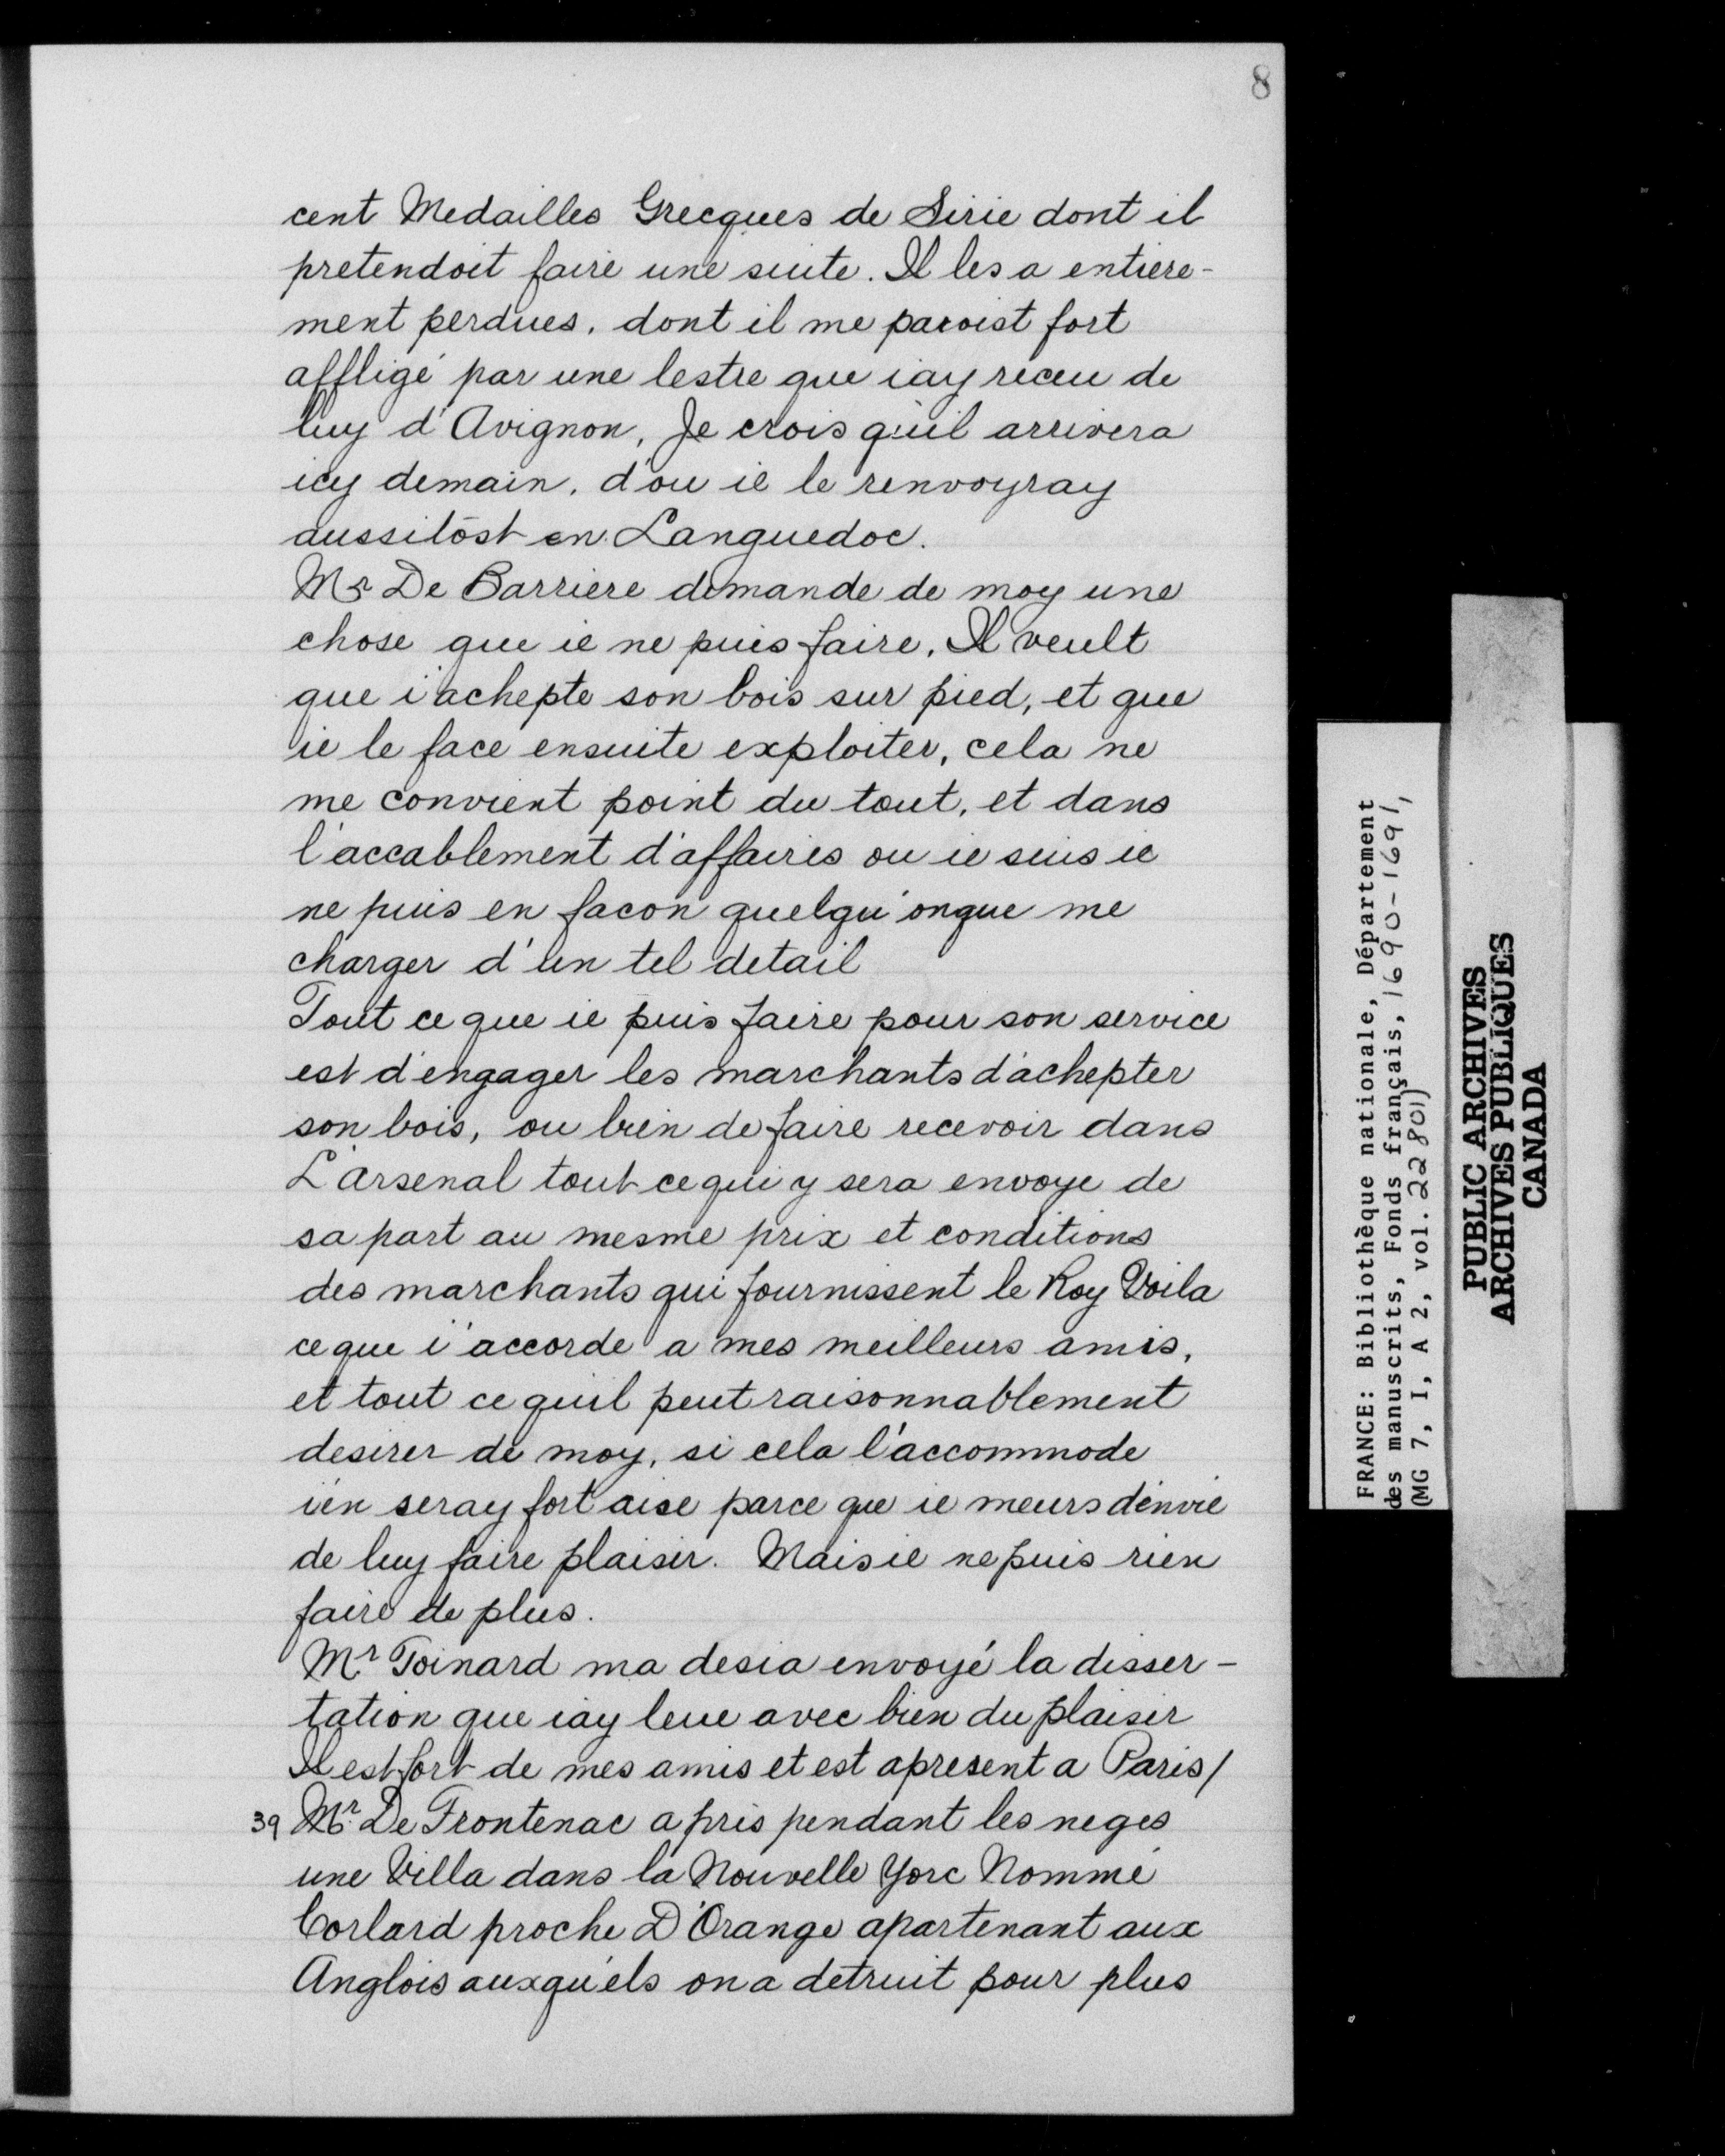 8
cent Medailles Grecques de Sirie dont il
pretendoit faire une suite. Il les a entiere-
ment perdues, dont il me paroist fort
affligé par une lestre que iay receu de
luy d'Avignon, Je crois qu'il arrivera
icy demain, d'ou ie le renvoyray
aussitost en Languedoc.
Mr De Barriere demande de moy une
chose que ie ne puis faire, Il veult
que i'achepte son bois sur pied, et que
ie le face ensuite exploiter, cela ne
me convient point du tout, et dans
l'accablement d'affaires ou ie suis ie
ne puis en facon quelqu'onque me
charger d'un tel detail
Tout ce que ie puis faire pour son service
est d'engager les marchants d'achepter
son bois, ou bien de faire recevoir dans
L'arsenal tout ce qui y sera envoye de
sa part au mesme prix et conditions
des marchants qui fournissent le Roy Voila
ce que i'accorde a mes meilleurs amis,
et tout ce quil peut raisonnablement
desirer de moy, si cela l'accommode
i'en seray fort aise parce que ie meurs d'envie
de luy faire plaisir. Mais ie ne puis rien
faire de plus.
Mr Toinard ma desia envoyé la disser-
tation que iay leue avec bien du plaisir
Il est fort de mes amis et est apresent a Paris/
39 Mr De Frontenac a pris pendant les neges
une Villa dans la Nouvelle Yorc Nommé
Corlard proche D'Orange apartenant aux
Anglois auxquels on a detruit pour plus
FRANCE: Bibliothèque nationale, Département
des manuscrits, Fonds français, 1690-1691,
(MG 7, I, A 2, vol. 22801)
PUBLIC ARCHIVES
ARCHIVES PUBLIQUES
CANADA